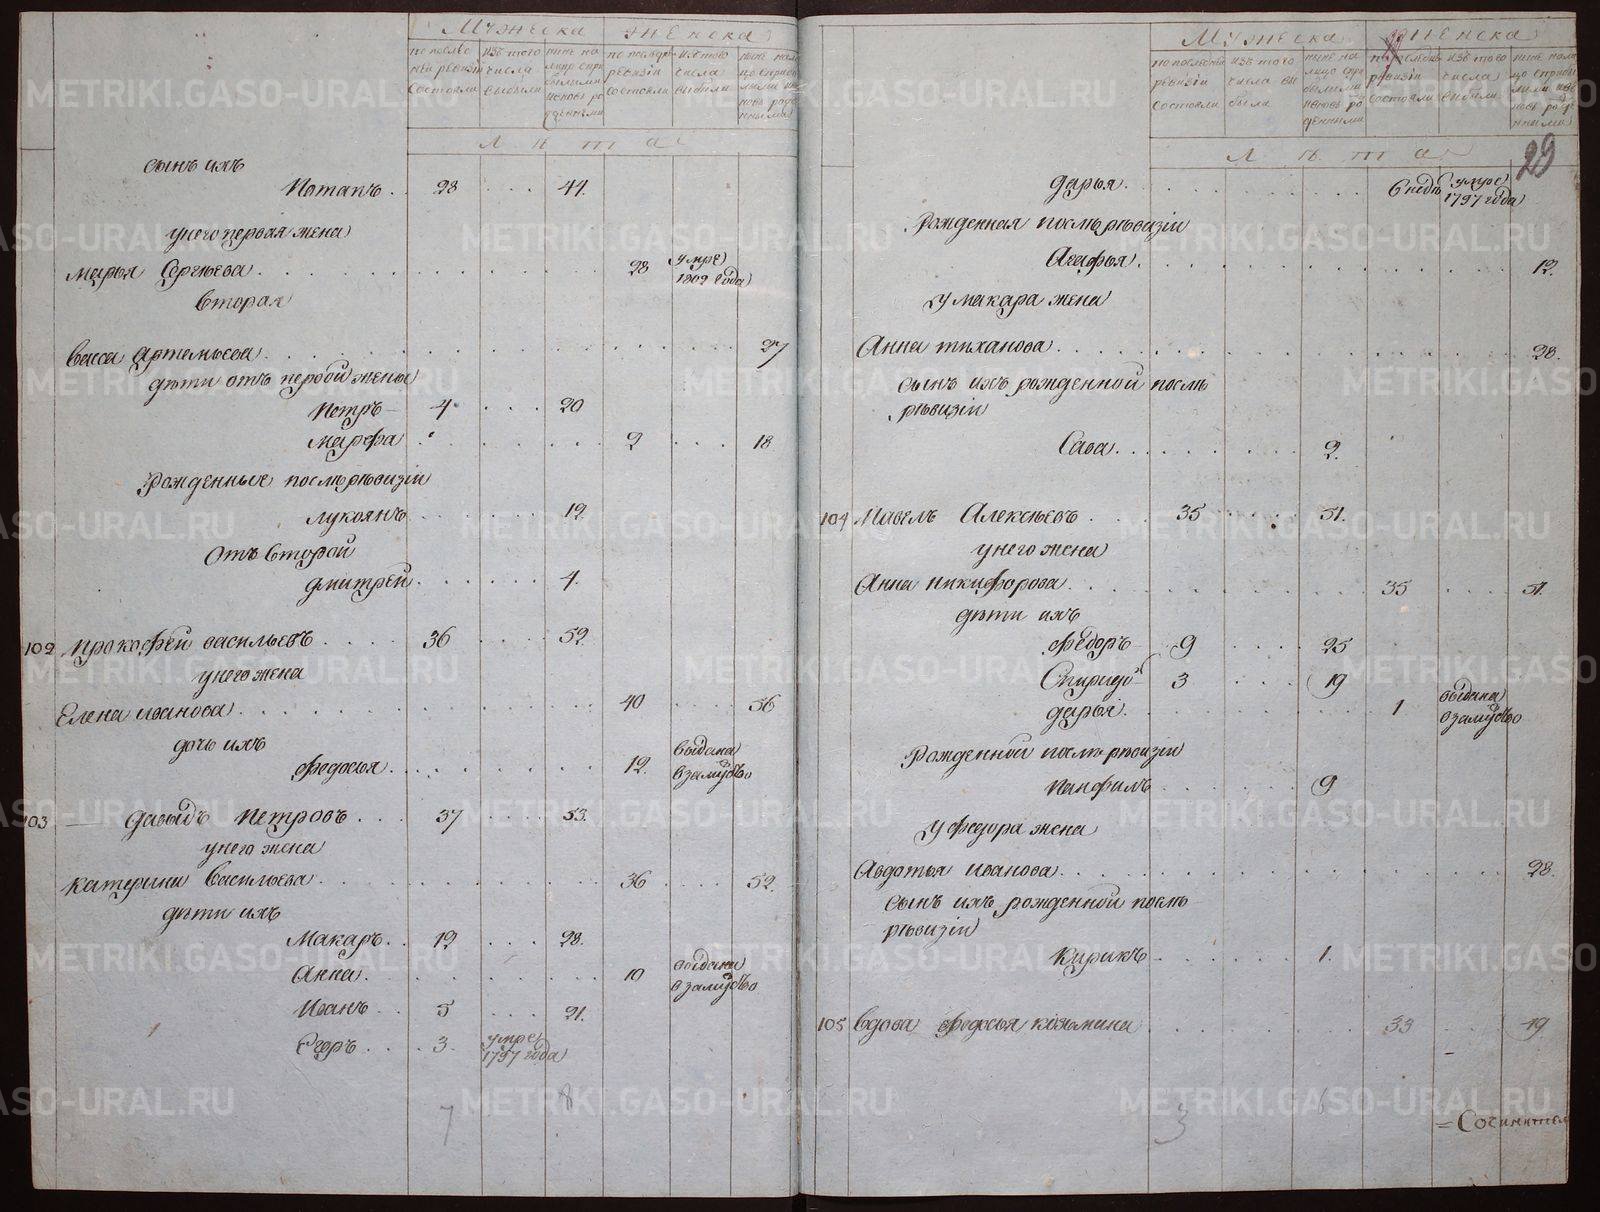 Мужеска Женска
по последней ревизiи состояли
изъ того числа выбыли
ныне на лицо съ прибылыми и вновь рожденными
по последн ревизiи состояли
изъ того числа выбыли
ныне на лицо съ прибылыми и вновь рожденными
лѣта
сынъ ихъ
Потапъ . . 28 . . . 44.
у него первая жена
марья Сергѣева . . . 28 умре 1802 года
вторая
васса Артемьева . . . 27
дѣти отъ первой жены
Петръ 4 . . . 20
марфа . . . 2 . . . 18
Рожденные послѣ рѣвизiи
лукоянъ . . . 12
отъ второй
дмитрей . . . 4.
102 прокофей васильевъ . . . 36 . . . 52.
у него жена
Елена иванова . . . 40 . . . 56
дочь ихъ
федосья . . . 12. выдана взамужство
103 давыдъ петровъ . . . 37 . . . 53.
у него жена
катерина васильева . . . 36 . . . 52.
дѣти ихъ
Макаръ . . 12 . . . 28.
Анна . . . 10 выдана взамужство
Иванъ . . 5 . . . 21.
Егоръ . . . 3. умре 1797 года
7 8
Мужеска Женска
по последней ревизiи состояли
изъ того числа выбыли
ныне на лицо съ прибылыми и вновь рожденными
по последн ревизiи состояли
изъ того числа выбыли
ныне на лицо съ прибылыми и вновь рожденными
лѣта
29
дарья . . . 6 недѣ умре 1797 года
Рожденная послѣ рѣвизiи
Агафья . . . 12.
у макара жена
Анна тиханова . . . 28.
сынъ ихъ рожденной послѣ
рѣвизiи
Сава . . . 2.
104 Павелъ Алексѣевъ . . . 35 . . . 51.
у него жена
Анна никифорова . . . 35 . . . 51.
дѣти ихъ
федоръ 9 . . . 25
Спиридо 3 . . . 19
дарья . . . 1 выдана взамужство
Рожденной послѣ рѣвизiи
панфилъ . . . 9
у федора жена
Авдотья иванова . . . 28.
сынъ ихъ рожденной послѣ
рѣвизiи
Кирикъ . . . 1.
105 вдова федосья козмина . . . 33 . . . 49.
3 6
= Сочинител
METRIKI.GASO-URAL.RU